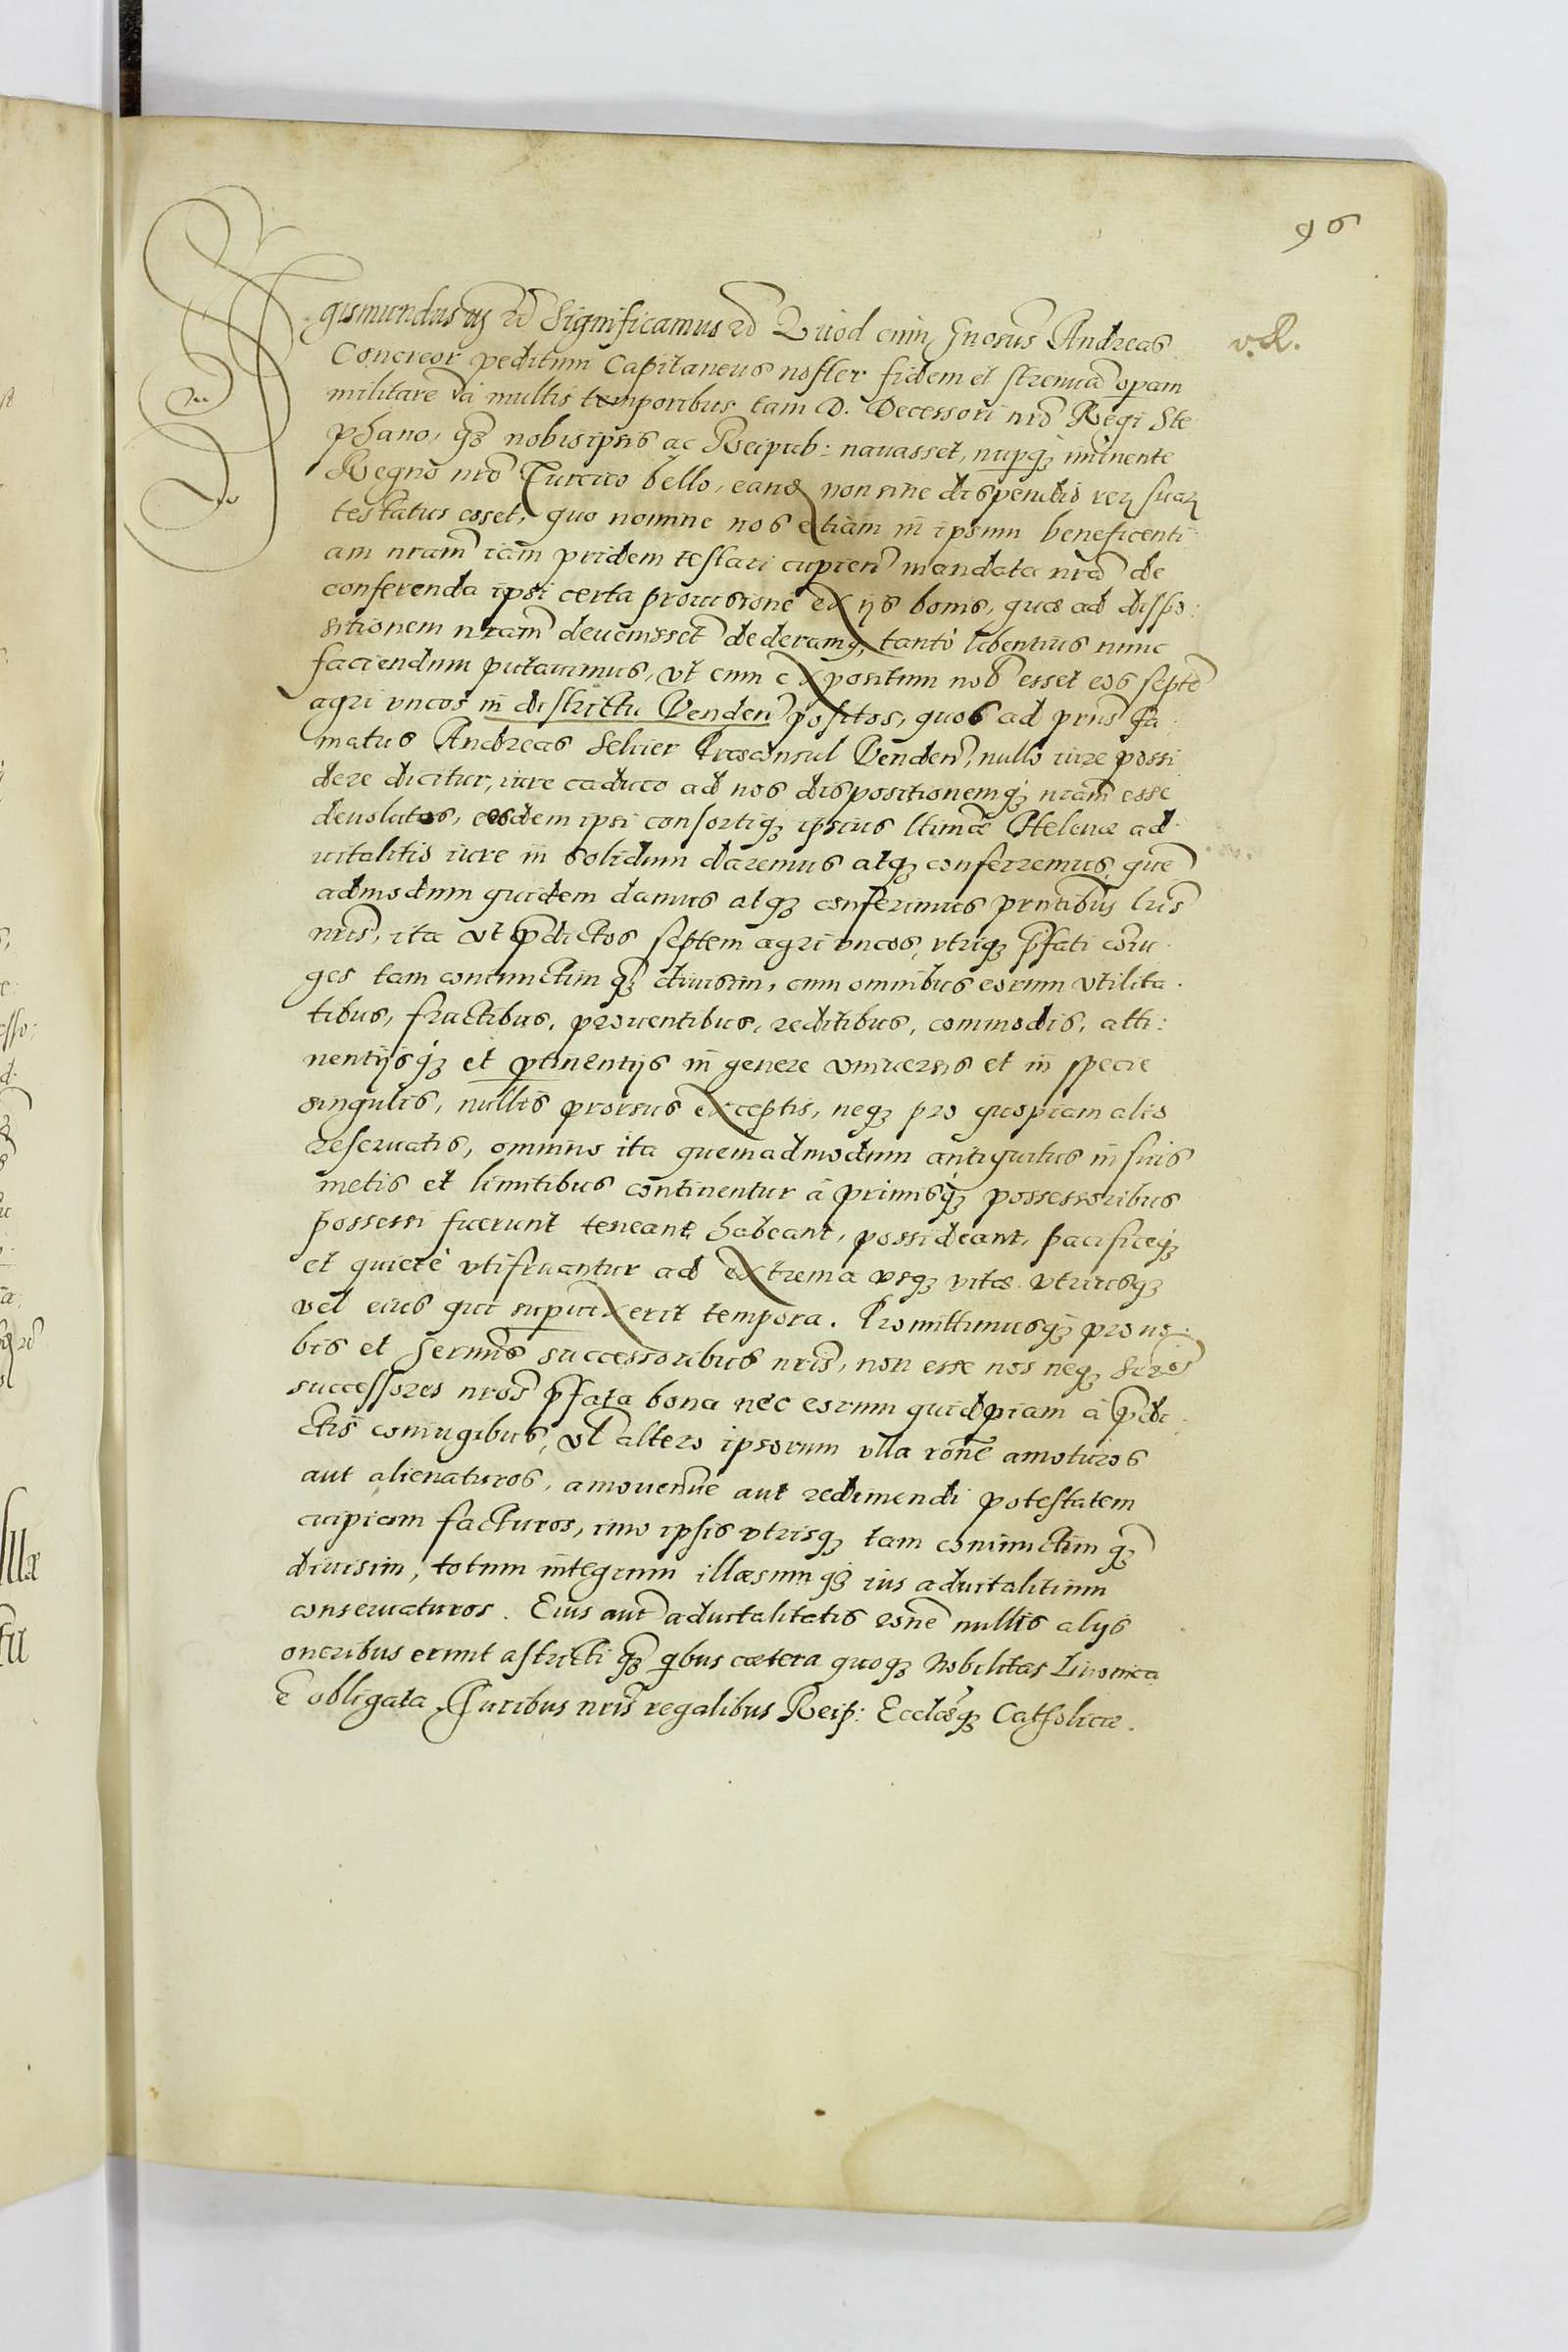 96
Sigismundus 3us etc Significamus etc Quod cum Gnosus Andreas
v. R.
Concreor peditum Capitaneus noster fidem et strenuã opam
militarẽ iã multis temporibus tam D. Decessori nro Regi Ste
phano, q̃ nobis ipsis ac Reipub: nauasset, nupq; imïnente
Regno nro Turcico bello, eandẽ non sine dispendio rerũ suarũ
testatus esset, quo nomine nos etiam in ipsum beneficenti
am nram iam pridem testari cupien mandata nra de
conferenda ipsi certa prouisione ex ijs bonis, quæ ad dispo:
sitionem nram deuenissent dederamus, tantò libentius nunc
faciendum putauimus, vt cum expositum nob esset eos septẽ
agri vncos in districtu Venden positos, quos ad prns fa
matus Andreas Seluer Præconsul Venden, nullo iure possi
dere dicitur, iure caduco ad nos dispositionemq; nram esse
deuolutos, eosdem ipsi consortiq; ipsius ltimæ Helenæ ad
uitalitio iure in solidum daremus atq; conferremus, quẽ
admodum quidem damus atq; conferimus prntibus lris
nris, ita vt pdictos septem agri vncos, vtriq; pfati coniu
ges tam coniunctim q̃ diuisim, cum omnibus eorum vtilita
tibus, fructibus, prouentibus, reditibus, commodis, atti:
nentijsq; et ptinentijs in genere vniuersis et in specie
singulis, nullis prorsus exceptis, neq; pro quopiam alio
reseruatis, omnino ita quemadmodum antiquitus in suis
metis et limitibus continentur à primisq; possessoribus
possessi fuerunt teneant, habeant, possideant, pacificeq;
et quietè vtifruantur ad extrema vsq; vitæ vtriusq;
vel eius qui supuixerit tempora. Promittimusq; pro no
bis et Sermis successoribus nris, non esse nos neq; Sermos
successores nros pfata bona nec eorum quidpiam à pdi
ctis coniugibus, vl altero ipsorum vlla rone amoturos
aut alienaturos, amouendiue aut redimendi potestatem
cuipiam facturos, imo ipsis vtrisq; tam coniunctim q̃
diuisim, totum integrum illæsumq; ius aduitalitium
conseruaturos. Eius aut aduitalitatis rone nullis alijs
oneribus erunt astricti q̃ qbus cætera quoq; Nobilitas Liuonica
ẽ obligata. Iuribus nris regalibus Reip: Ecclæq; Catholicæ.